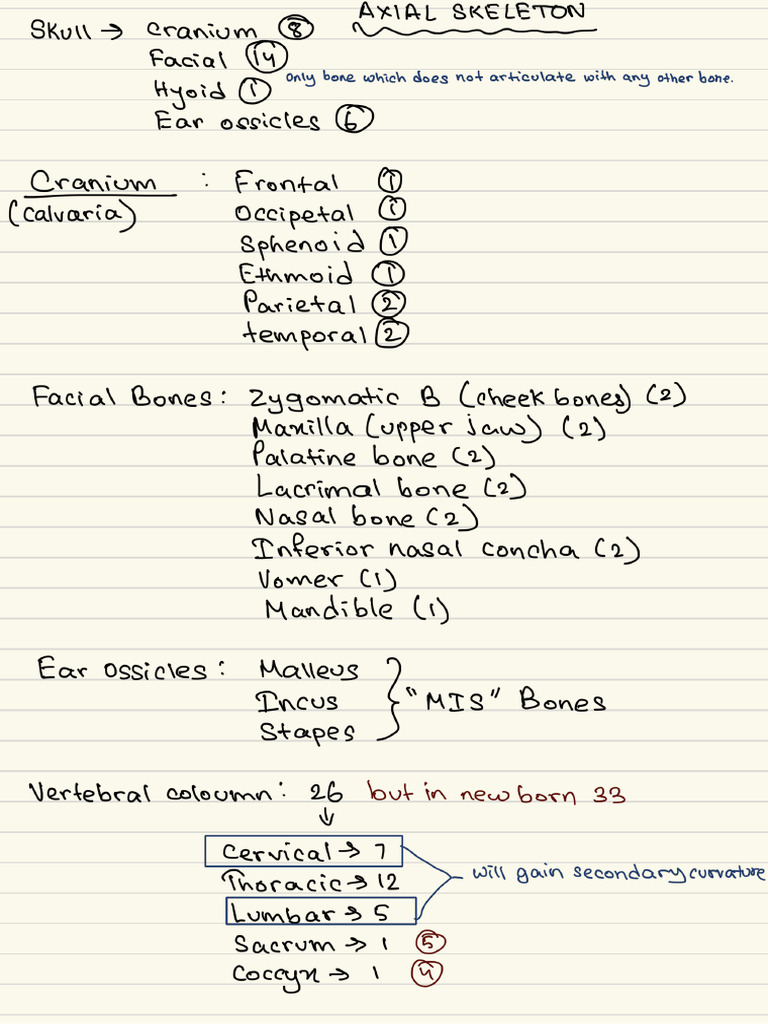 AXIAL SKELETON
Skull → Cranium 8
Facial 14
Only bone which does not articulate with any other bone.
Hyoid 1
Ear ossicles 6
Cranium : Frontal 1
(Calvaria) Occipetal 1
Sphenoid 1
Ethmoid 1
Parietal 2
temporal 2
Facial Bones: Zygomatic B (cheek bones) (2)
Maxilla (upper jaw) (2)
Palatine bone (2)
Lacrimal bone (2)
Nasal bone (2)
Inferior nasal concha (2)
Vomer (1)
Mandible (1)
Ear ossicles: Malleus
Incus } "MIS" Bones
Stapes
Vertebral coloumn: 26 but in new born 33
↓
Cervical → 7
Thoracic → 12 will gain secondary curvature
Lumbar → 5
Sacrum → 1 5
Coccyx → 1 4